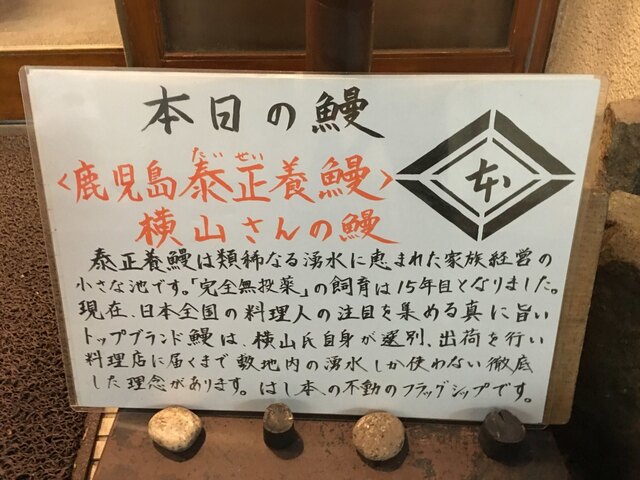 本日の鰻
本
たいせい
〈鹿児島泰正養鰻〉
横山さんの鰻
泰正養鰻は類稀なる湧水に恵まれた家族経営の
小さな池です。「完全無投薬」の飼育は15年目となりました。
現在、日本全国の料理人の注目を集める真に旨い
トップブランド鰻は、横山氏自身が選別、出荷を行い
料理店に届くまで敷地内の湧水しか使わない徹底
した理念があります。はし本の不動のフラッグシップです。